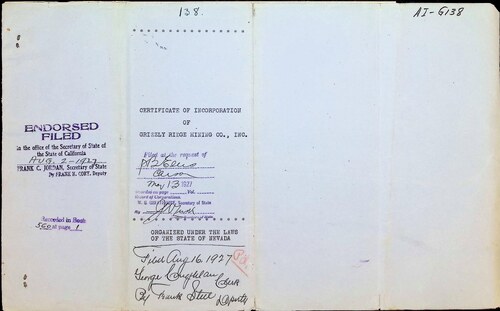 138.
AI-6138
ENDORSED
FILED
in the office of the Secretary of State of
the State of California
AUG 2 - 1927
FRANK C. JORDAN, Secretary of State
By FRANK H. CORY, Deputy
Recorded in Book
560 at page 1
CERTIFICATE OF INCORPORATION
OF
GRIZZLY RIDGE MINING CO., INC.
Filed at the request of
Carson
May 13 1927
Secretary of State
By
ORGANIZED UNDER THE LAWS
OF THE STATE OF NEVADA
Filed Aug 16 1927
George Coughlan
Clerk
By Frank Steel
Deputy